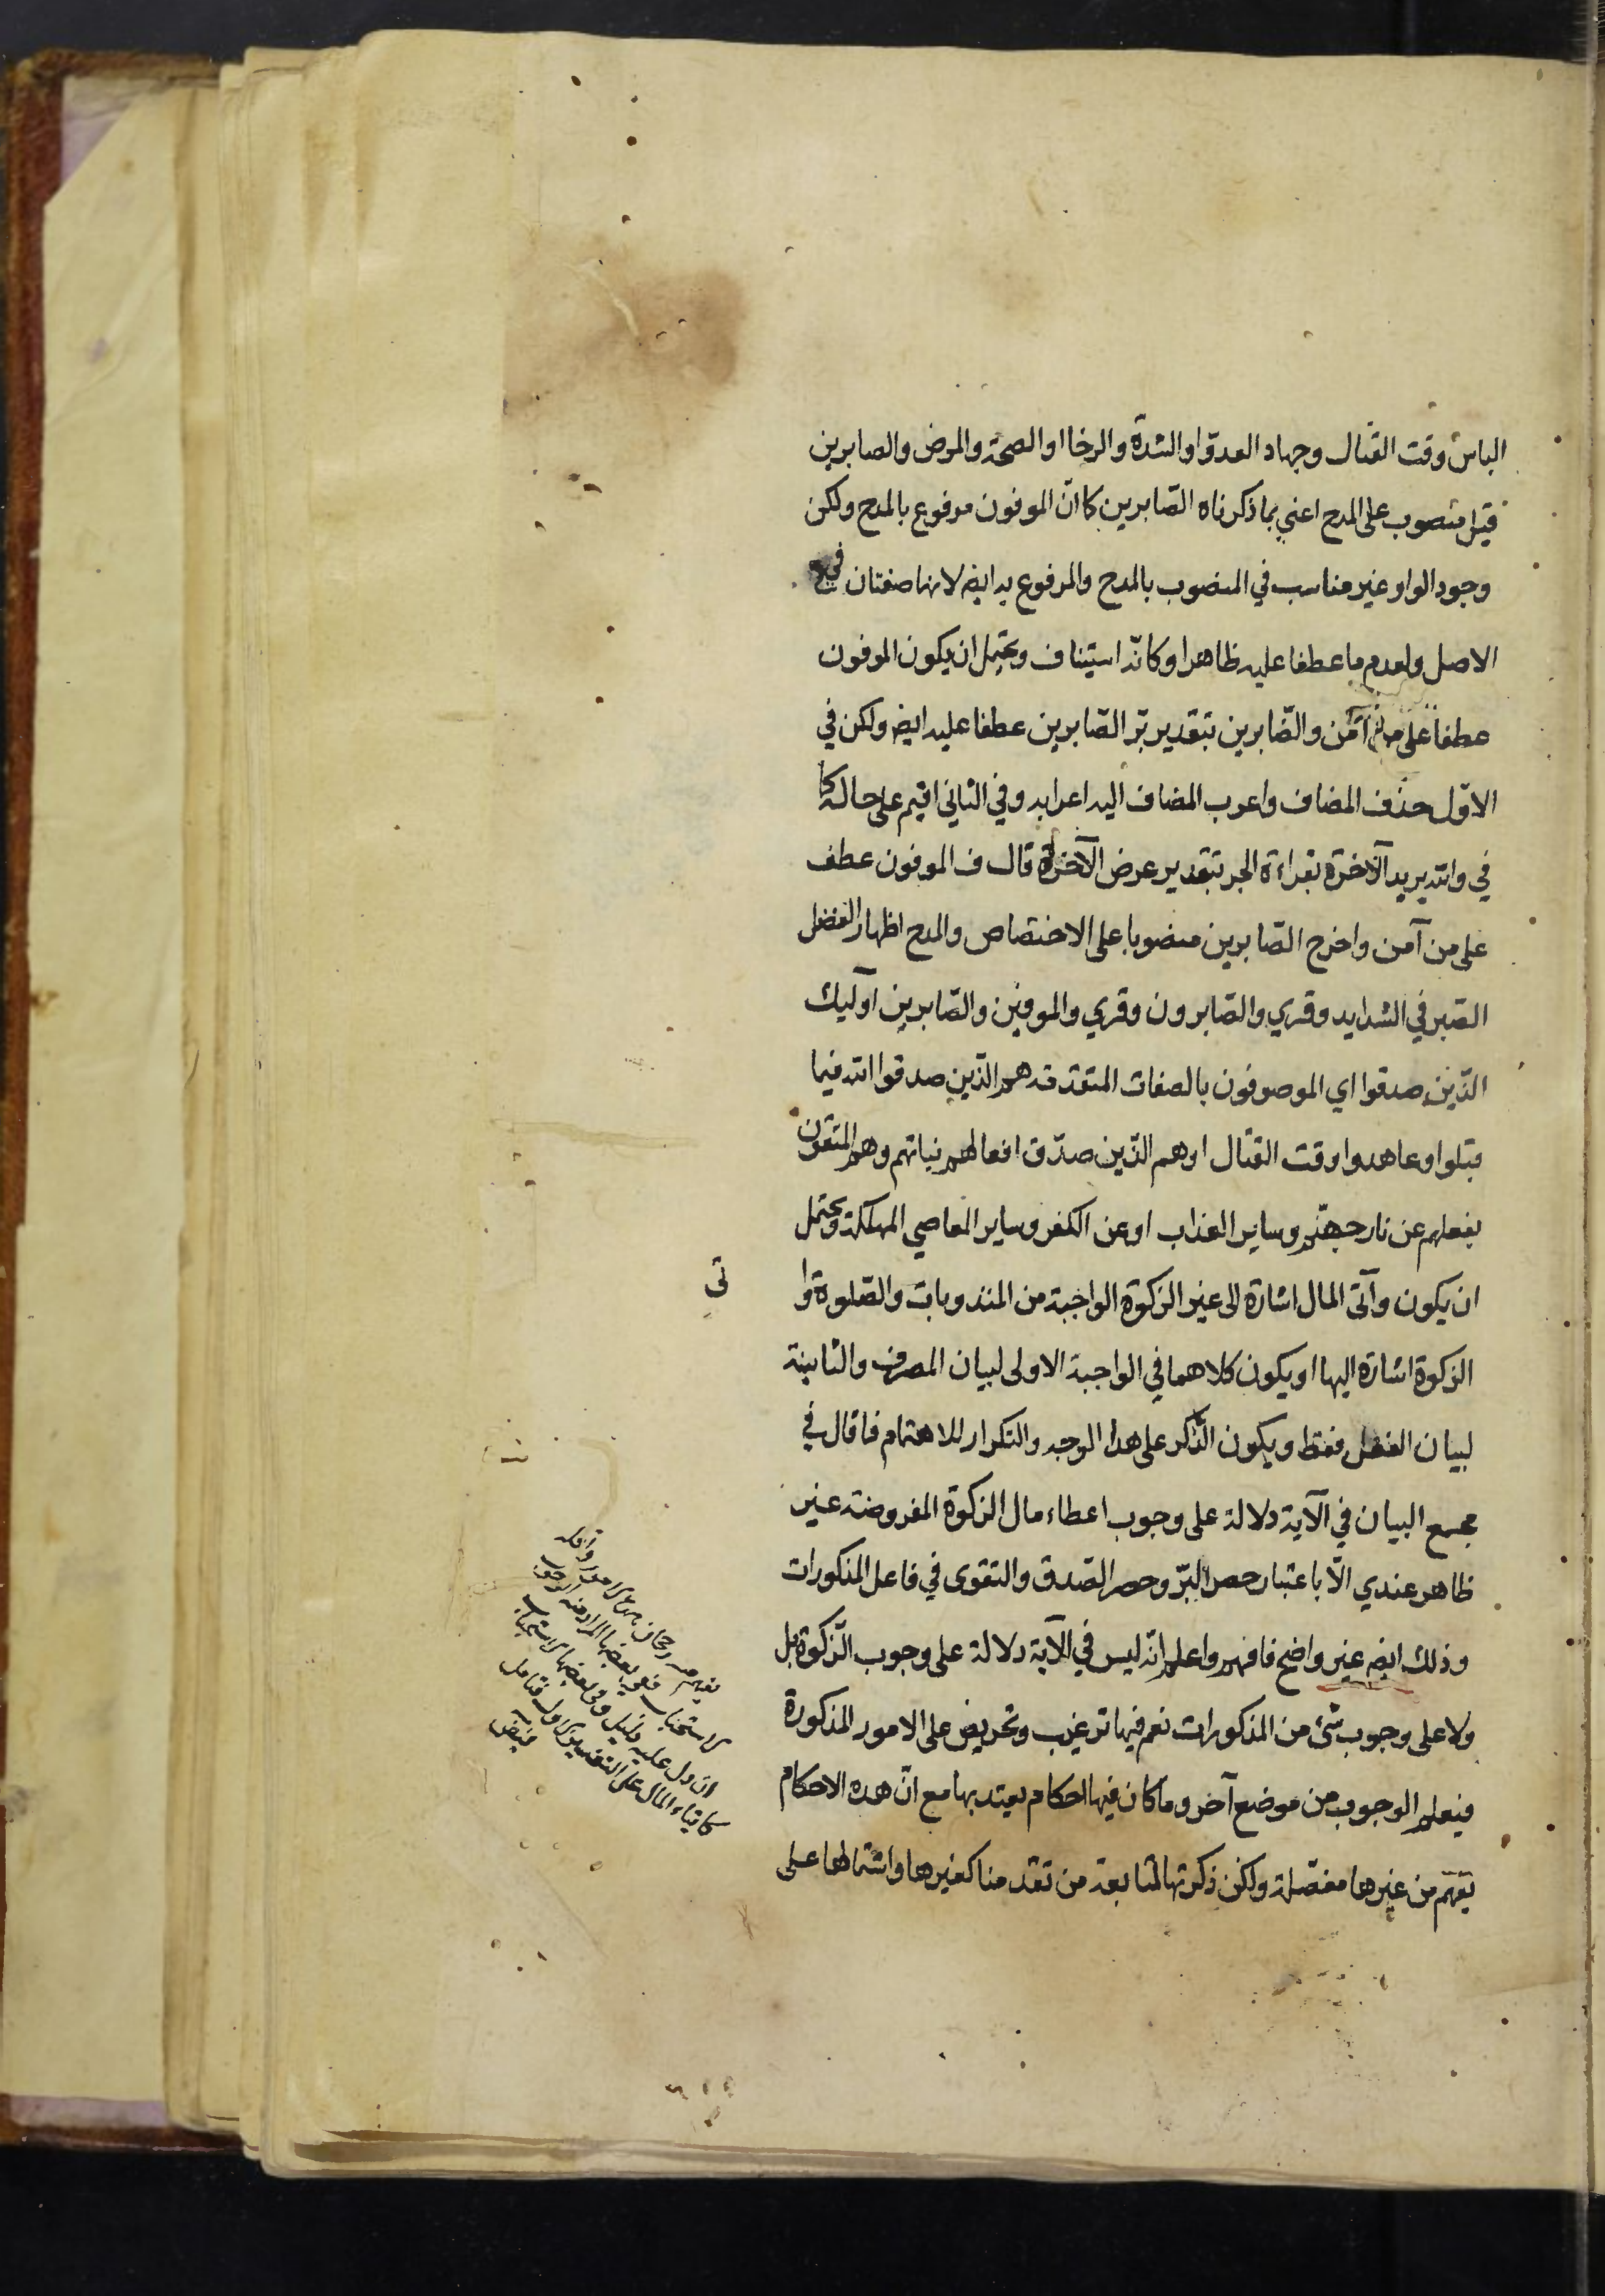 الباس وقت القتال وجهاد العدوّ او الشدة والرخا او الصحة والمرض والصابرين
قيل منصوب على المدح اعني بما ذكرناه الصّابرين كما انّ الموفون مرفوع بالمدح ولكن
وجود الواو غير مناسب في المنصوب بالمدح والمرفوع به ايضه لانها صفتان في
الاصل ولعدم ما عطفا عليه ظاهرا وكانّه استيناف ويحتمل ان يكون الموفون
عطفا على من آمن والصّابرين بتقدير برّ الصّابرين عطفا عليه ايضه ولكن في
الاوّل حذف المضاف واعرب المضاف اليه اعرابه وفي الثاني اقيم على حاله كما
في والله يريد الآخرة بقراءة الجر بتقدير عرض الآخرة قال ف الموفون عطف
على من آمن واخرج الصّابرين منصوبا على الاختصاص والمدح اظهار الفضل
الصّبر في الشدايد وقري والصّابرون وقري والموفين والصّابرين اوليك
الذين صدقوا اي الموصوفون بالصفات المتقدمة هم الذين صدقوا الله فيما
قبلوا وعاهدوا وقت القتال او هم الذين صدّق افعالهم نياتهم وهم المتقون
بفعلهم عن نار جهنّم وساير العذاب او عن الكفر وساير المعاصي المهلكة ويحتمل
ان يكون وآتى المال اشارة الى غير الزكوة الواجبة من المندوبات والصّلوة وا
تى
الزكوة اشارة اليها او يكون كلاهما في الواجبة الاولى لبيان المصرف والثانية
لبيان الفعل فقط ويكون الذّكر على هذا الوجه والتكرار للاهتمام فما قال في
مجمع البيان في الآية دلالة على وجوب اعطاء مال الزكوة المفروضة غير
ظاهر عندي الّا باعتبار حصر البرّ وحصر الصّدق والتقوى في فاعل المذكورات
وذلك ايضه غير واضح فافهم واعلم انّه ليس في الآية دلالة على وجوب الزّكوة بل
ولا على وجوب شئ من المذكورات نعم فيها ترغيب وتحريض على الامور المذكورة
فيعلم الوجوب من موضع آخر وما كان فيها احكام يعتد بها مع انّ هذه الاحكام
يفهم من غيرها مفصّلة ولكن ذكرتها لمتابعة من تقدمنا كغيرها واشتمالها على
ان دل عليه دليل وفي بعضها الاستحباب
كايتاء المال على التفسير الاول فتامل